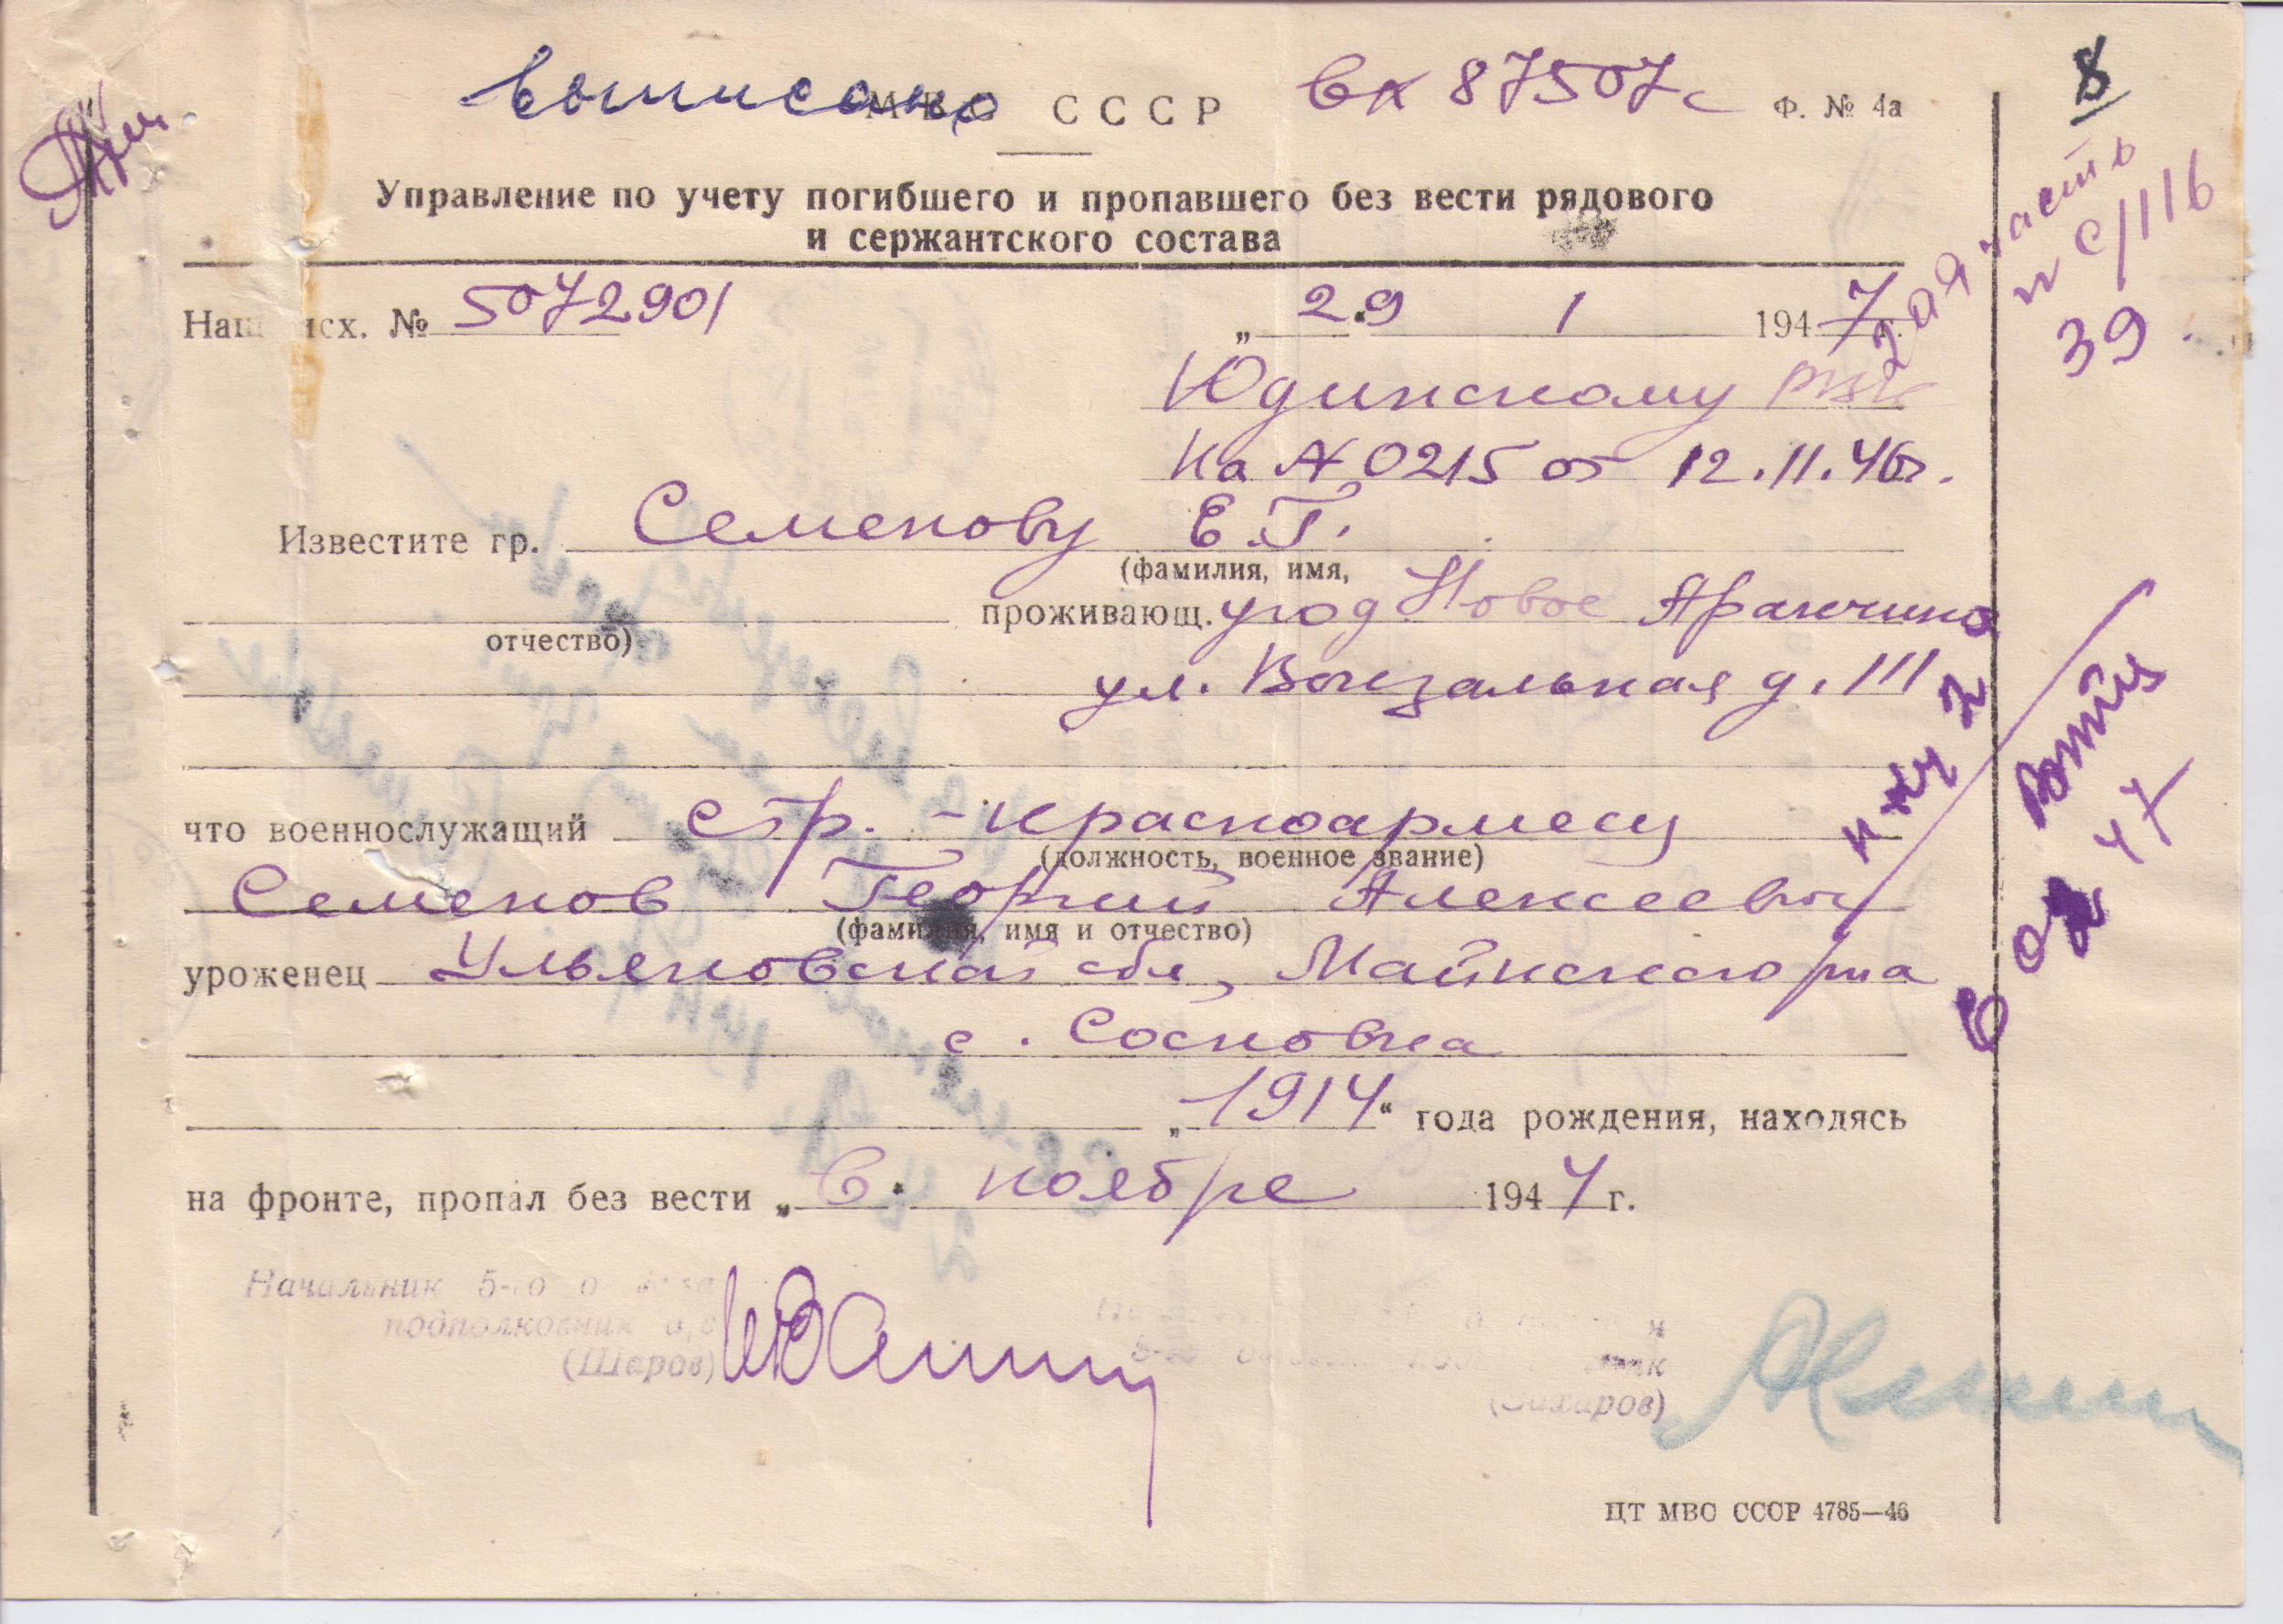 выписано МВС СССР Вх 87507с Ф. № 4а
8
Управление по учету погибшего и пропавшего без вести рядового
и сержантского состава
2ая часть
н с/116
39
Наш исх. № 5072901 „29“ 1 1947 г.
Юдинскому РВК
На № 0215 от 12.11.46г.
Известите гр. Семенову Е.Г.
(фамилия, имя,
проживающ. Новое Аракчино
отчество)
ул. Вокзальная д. 111
что военнослужащий стр. - красноармеец
(должность, военное звание)
Семенов Георгий Алексеевич
(фамилия, имя и отчество)
уроженец Ульяновской обл, Майнского р-на
с. Сосновка
„1914“ года рождения, находясь
на фронте, пропал без вести „в“ ноябре 194 г.
Начальник 5-го отдела
подполковник а/с
(Шаров)
5-го отдела
(Захаров)
ЦТ МВС СССР 4785—46